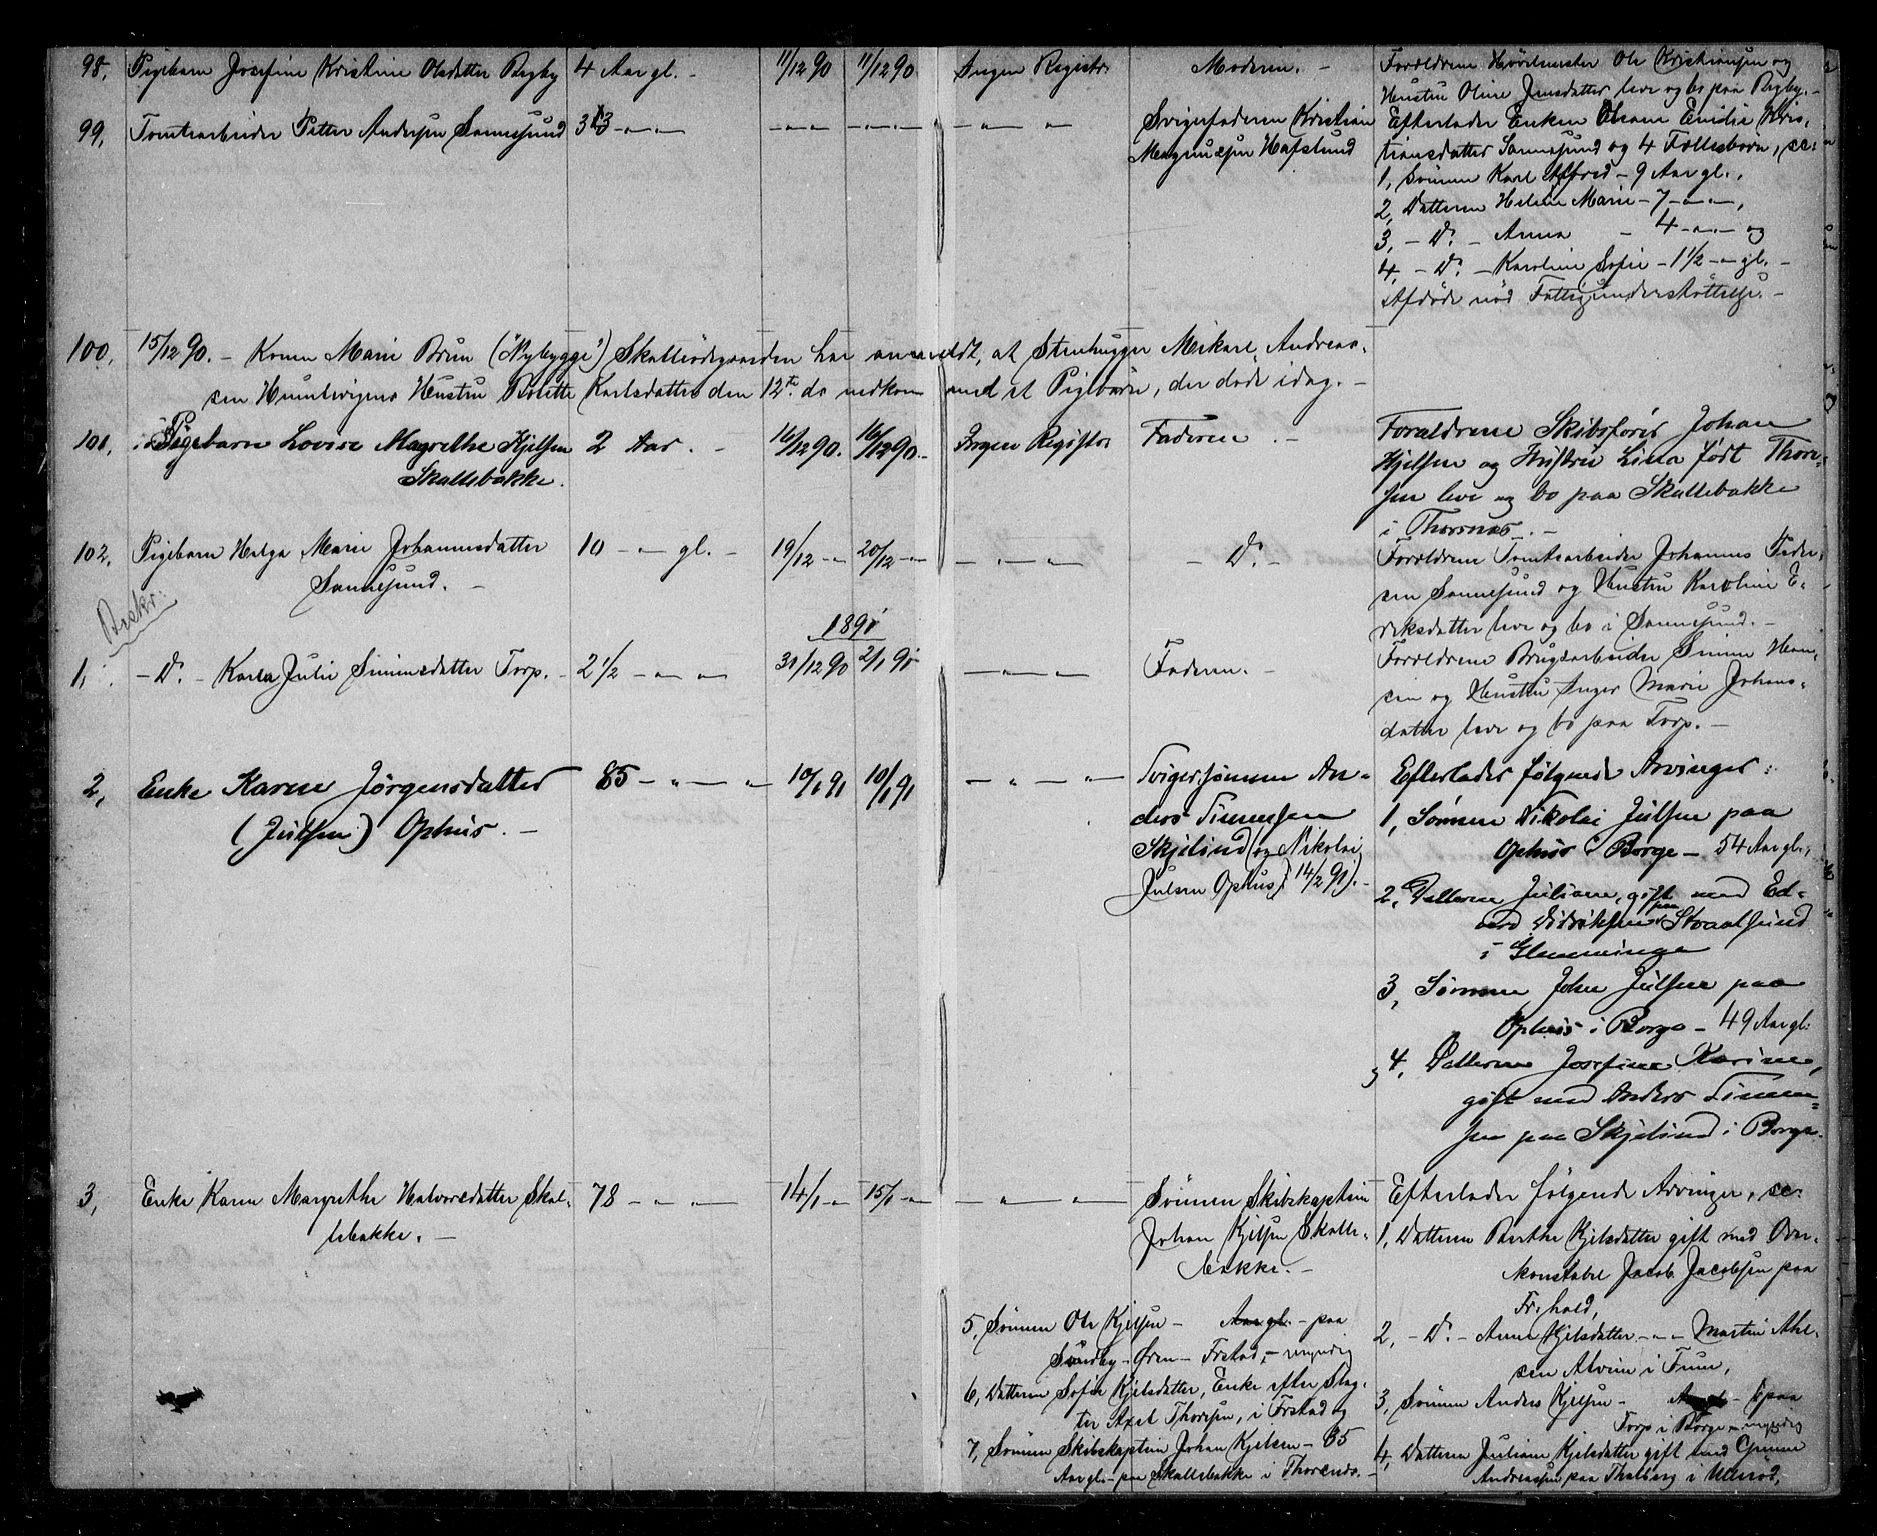 98, Pigebarn Josefine Kristine Olsdatter Rugby 4 Aar gl. - 11/12 90 11/12 90 Ingen Registr. Moderen. - Forældrene Hvælvmester Ole Kristiansen og
Hustru Oline Jensdatter leve og bo paa Rugby. -
99, Tomtearbeider Petter Andersen Sannesund 33 - „ - „ - „ - „ - „ - „ - Svigerfaderen Kristian
Magnussen Hafslund
Efterlader Enken Emilie Kris-
tiansdatter Sannesund og 4 Fællesbørn, sc:
1, Sønnen Karl Alfred - 9 Aar gl.,
2, Datteren Helene Marie - 7 - „ - „,
3, - D: - Anna - 4 - „ - og
4, - D: - Karoline Sofie - 1 1/2 - „ gl. -
Afdøde nød Fattigunderstøttelse. -
100, 15/12 90. - Konen Marie Brun ("Nybygge") Skallerødgaarden har anmeldt, at Stenhugger Mikael Andreas-
sen Huntevigens Hustru Bolette Karlsdatter den 12te ds nedkom med et Pigebarn, der døde idag. -
101, Pigebarn Lovise Magrethe Kjelsen
Skallebakke.
2 Aar. - 16/12 90. 16/12 90. Ingen Registr Faderen. - Forældrene Skibsfører Johan
Kjelsen og Hustru Lina født Thore-
sen leve og bo paa Skallebakke
i Thorsnæs. -
102, Pigebarn Helga Marie Johannesdatter
Sannesund. -
10 - „ gl. - 19/12 - „ 20/12 - „ - „ - „ - - D: - Forældrene Tomtearbeider Johannes Peder-
sen Sannesund og Hustru Karoline E-
riksdatter leve og bo i Sannesund. -
1891
1, - D: - Karla Julie Simensdatter Torp. - 2 1/2 - „ - „ 31/12 90 2/1 91 - „ - „ - Faderen. - Forældrene Brugsarbeider Simen Han-
sen og Hustru Inger Marie Johans-
datter leve og bo paa Torp. -
2, Enke Karen Jørgensdatter
(Julsen) Ophus. -
85 - „ - „ 10/1 91 10/1 91 - „ - „ - Svigersønnen An-
ders Simensen
Skjelsund (og Nikolai
Julsen Ophus, 14/2 91). -
Efterlader følgende Arvinger:
1, Sønnen Nikolai Julsen paa
Ophus i Borge - 54 Aar gl.,
2, Datteren Juliane, gift med Ed-
vard Didriksen paa Straalsund
i Glemminge
3, Sønnen Johan Julsen paa
Ophus i Borge - 49 Aar gl.
4, Datteren Josefine Karine,
gift med Anders Simen-
sen paa Skjelsund i Borge.
3, Enke Karen Margrethe Halvorsdatter Skal-
lebakke. -
78 - „ - „ - 14/1 - „ 15/1 - „ - „ - „ - Sønnen Skibskaptein
Johan Kjelsen Skalle-
bakke. -
Efterlader følgende Arvinger, sc:
1, Datteren Berthe Kjelsdatter gift med Over-
konstabel Jacob Jacobsen paa
Fr.hald,
2, - D: - Anne Kjelsdatter - „ - Martin
Alvim i Tune,
3, Sønnen Anders Kjelsen - paa
Torp i Borge - myndig
4, Datteren Juliane Kjelsdatter gift med
Andreassen paa Thalberg i Ullerød,
5, Sønnen Ole Kjelsen - Aar gl. - paa
Sundby - Øren - Frstad, - myndig
6, Datteren Sofie Kjelsdatter, Enke efter Slag-
ter Axel Thoresen, i Frstad og
7, Sønnen Skibskaptein Johan Kjelsen - 35
Aar gl. - paa Skallebakke i Thorsnæs. -